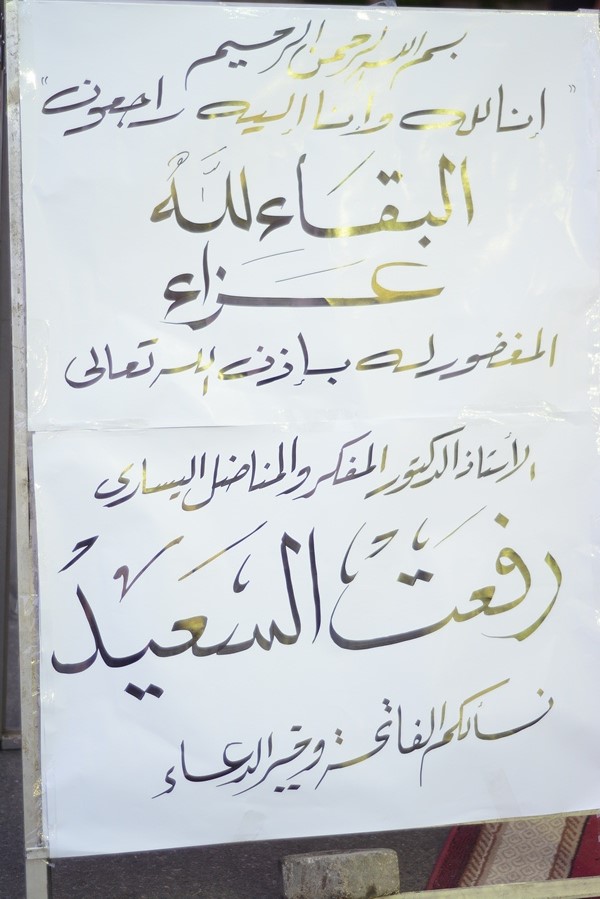 بسم الله الرحمن الرحيم
"إنا لله وإنا إليه راجعون"
البقاء لله
عزاء
المغفور له بإذن الله تعالى
الأستاذ الدكتور المفكر والمناضل اليسارى
رفعت السعيد
نسألكم الفاتحة وخير الدعاء